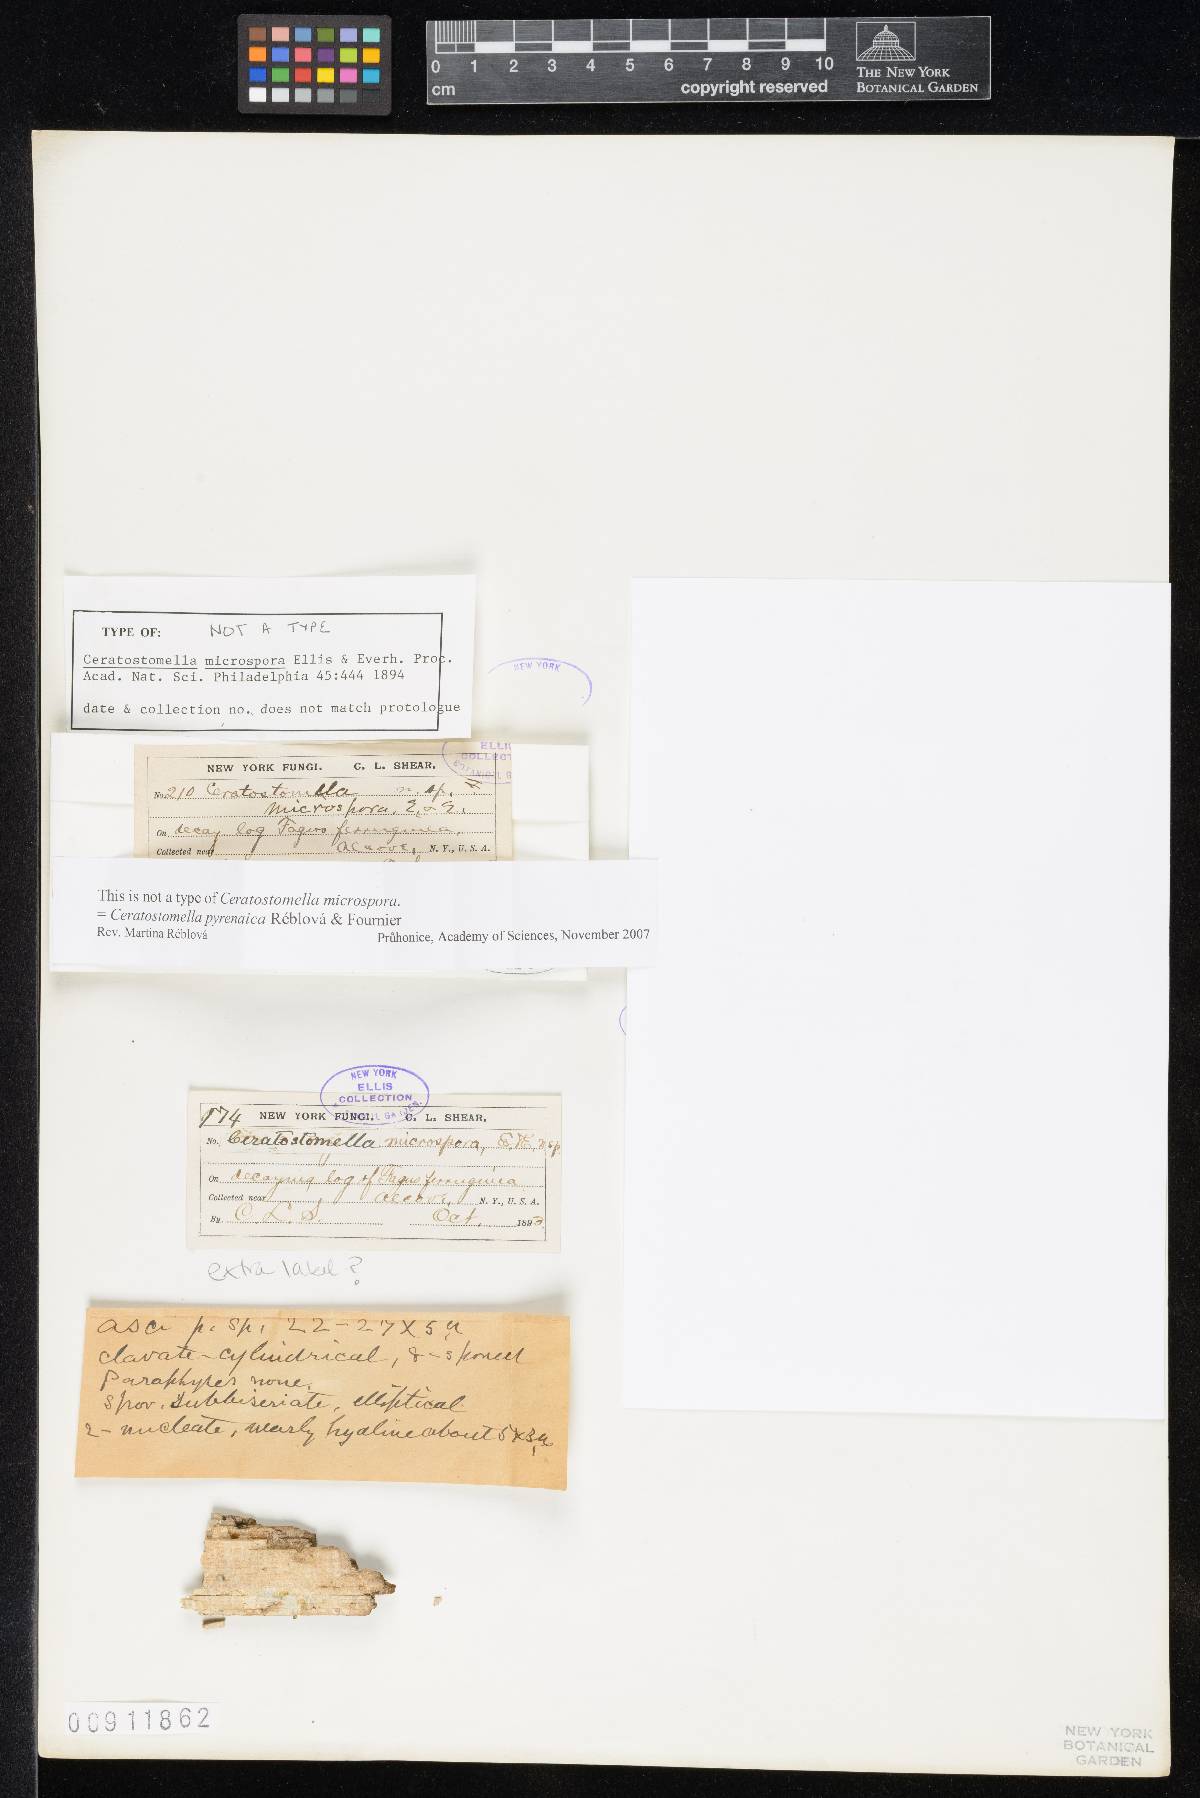 0 1 2 3 4 5 6 7 8 9 10
cm
copyright reserved
THE NEW YORK
BOTANICAL GARDEN
TYPE OF: NOT A TYPE
Ceratostomella microspora Ellis & Everh. Proc.
Acad. Nat. Sci. Philadelphia 45:444 1894
date & collection no. does not match protologue
NEW YORK
ELLIS
COLLECT
NEW YORK FUNGI. C. L. SHEAR.
No. 210 Ceratostomella n. sp.
microspora, E. & E.
On decay log Fagus ferruginea.
Collected near Alcove, N. Y., U. S. A.
This is not a type of Ceratostomella microspora.
= Ceratostomella pyrenaica Réblová & Fournier
Rev. Martina Réblová Průhonice, Academy of Sciences, November 2007
NEW YORK
ELLIS
COLLECTION
174 NEW YORK FUNGI. C. L. SHEAR.
No. Ceratostomella microspora, E&E, n sp.
On decaying log of Fagus ferruginea
Collected near Alcove, N. Y., U. S. A.
By C. L. S. Oct. 1893.
extra label?
asci p. sp. 22-27 X 5 µ
clavate-cylindrical, 8-spored
Paraphyses none.
Spor. subbiseriate, elliptical
2-nucleate, nearly hyaline about 5 x 3 µ
00911862
NEW YORK
BOTANICAL
GARDEN